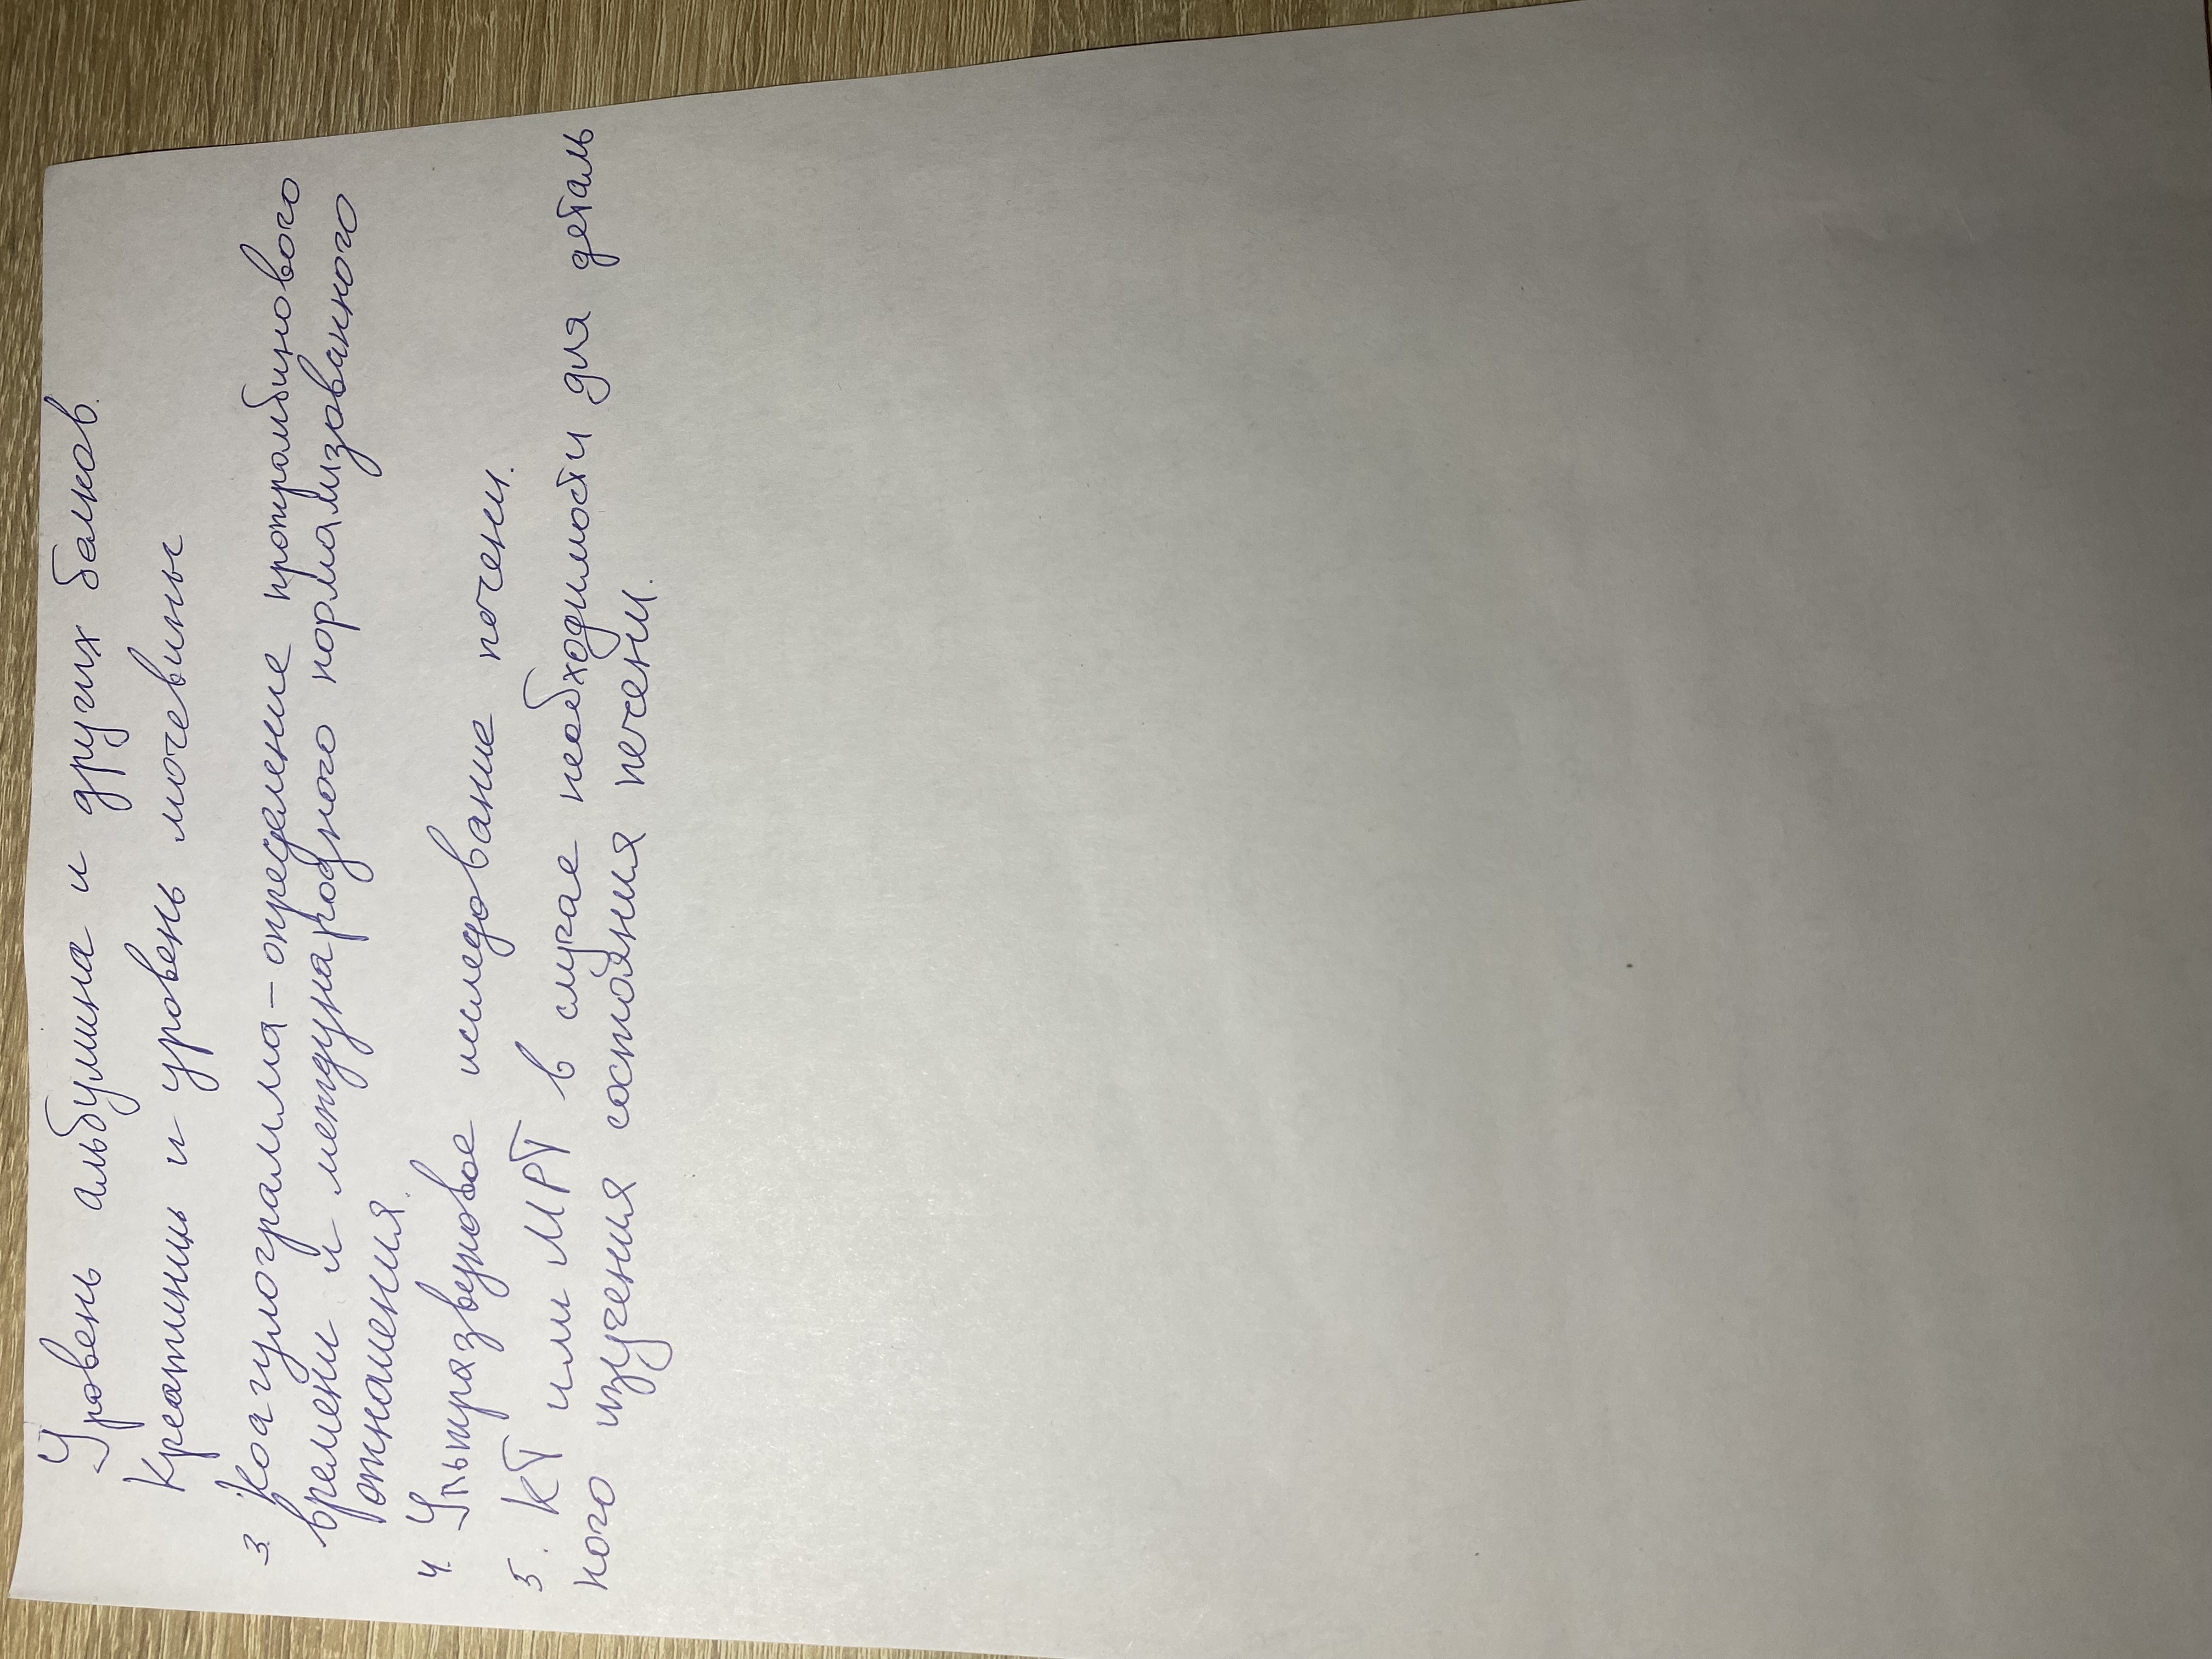 Уровень альбумина и других белков.
Креатинин и уровень мочевины
3. Коагулограмма - определение протромбинового
времени и международного нормализованного
отношения.
4. Ультразвуковое исследование печени.
5. КТ или МРТ в случае необходимости для деталь
ного изучения состояния печени.